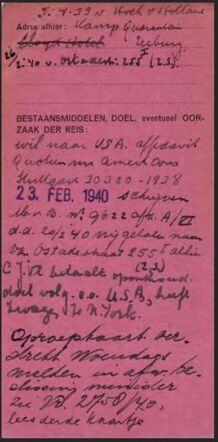 3. 4. 39 v. Hoek v. Holland
Adres alhier: Kamp Quarantain
Lloyd Hotel Zeeburg
26/2. 40 v. Ostadestr. 255 I (2.S).
BESTAANSMIDDELEN, DOEL, eventueel OOR-
ZAAK DER REIS:
wil naar USA. affidavit
Quotanum. Amer. Cons
Stuttgart 30300 - 1938
23 FEB. 1940 schrijven
M. v. B. No. 9622 afd. A/VI
d.d. 20/2 40 toegelaten naar
v. Ostadestraat 255 I alhier
(2.S)
C J.Vl. betaalt onderhoud.
doel volg. e.o. U.S.A., heeft
te N. York.
Oproepkaart ver-
strekt Woensdags
melden in afw. be-
slissing minister
zie VB. 2758/40.